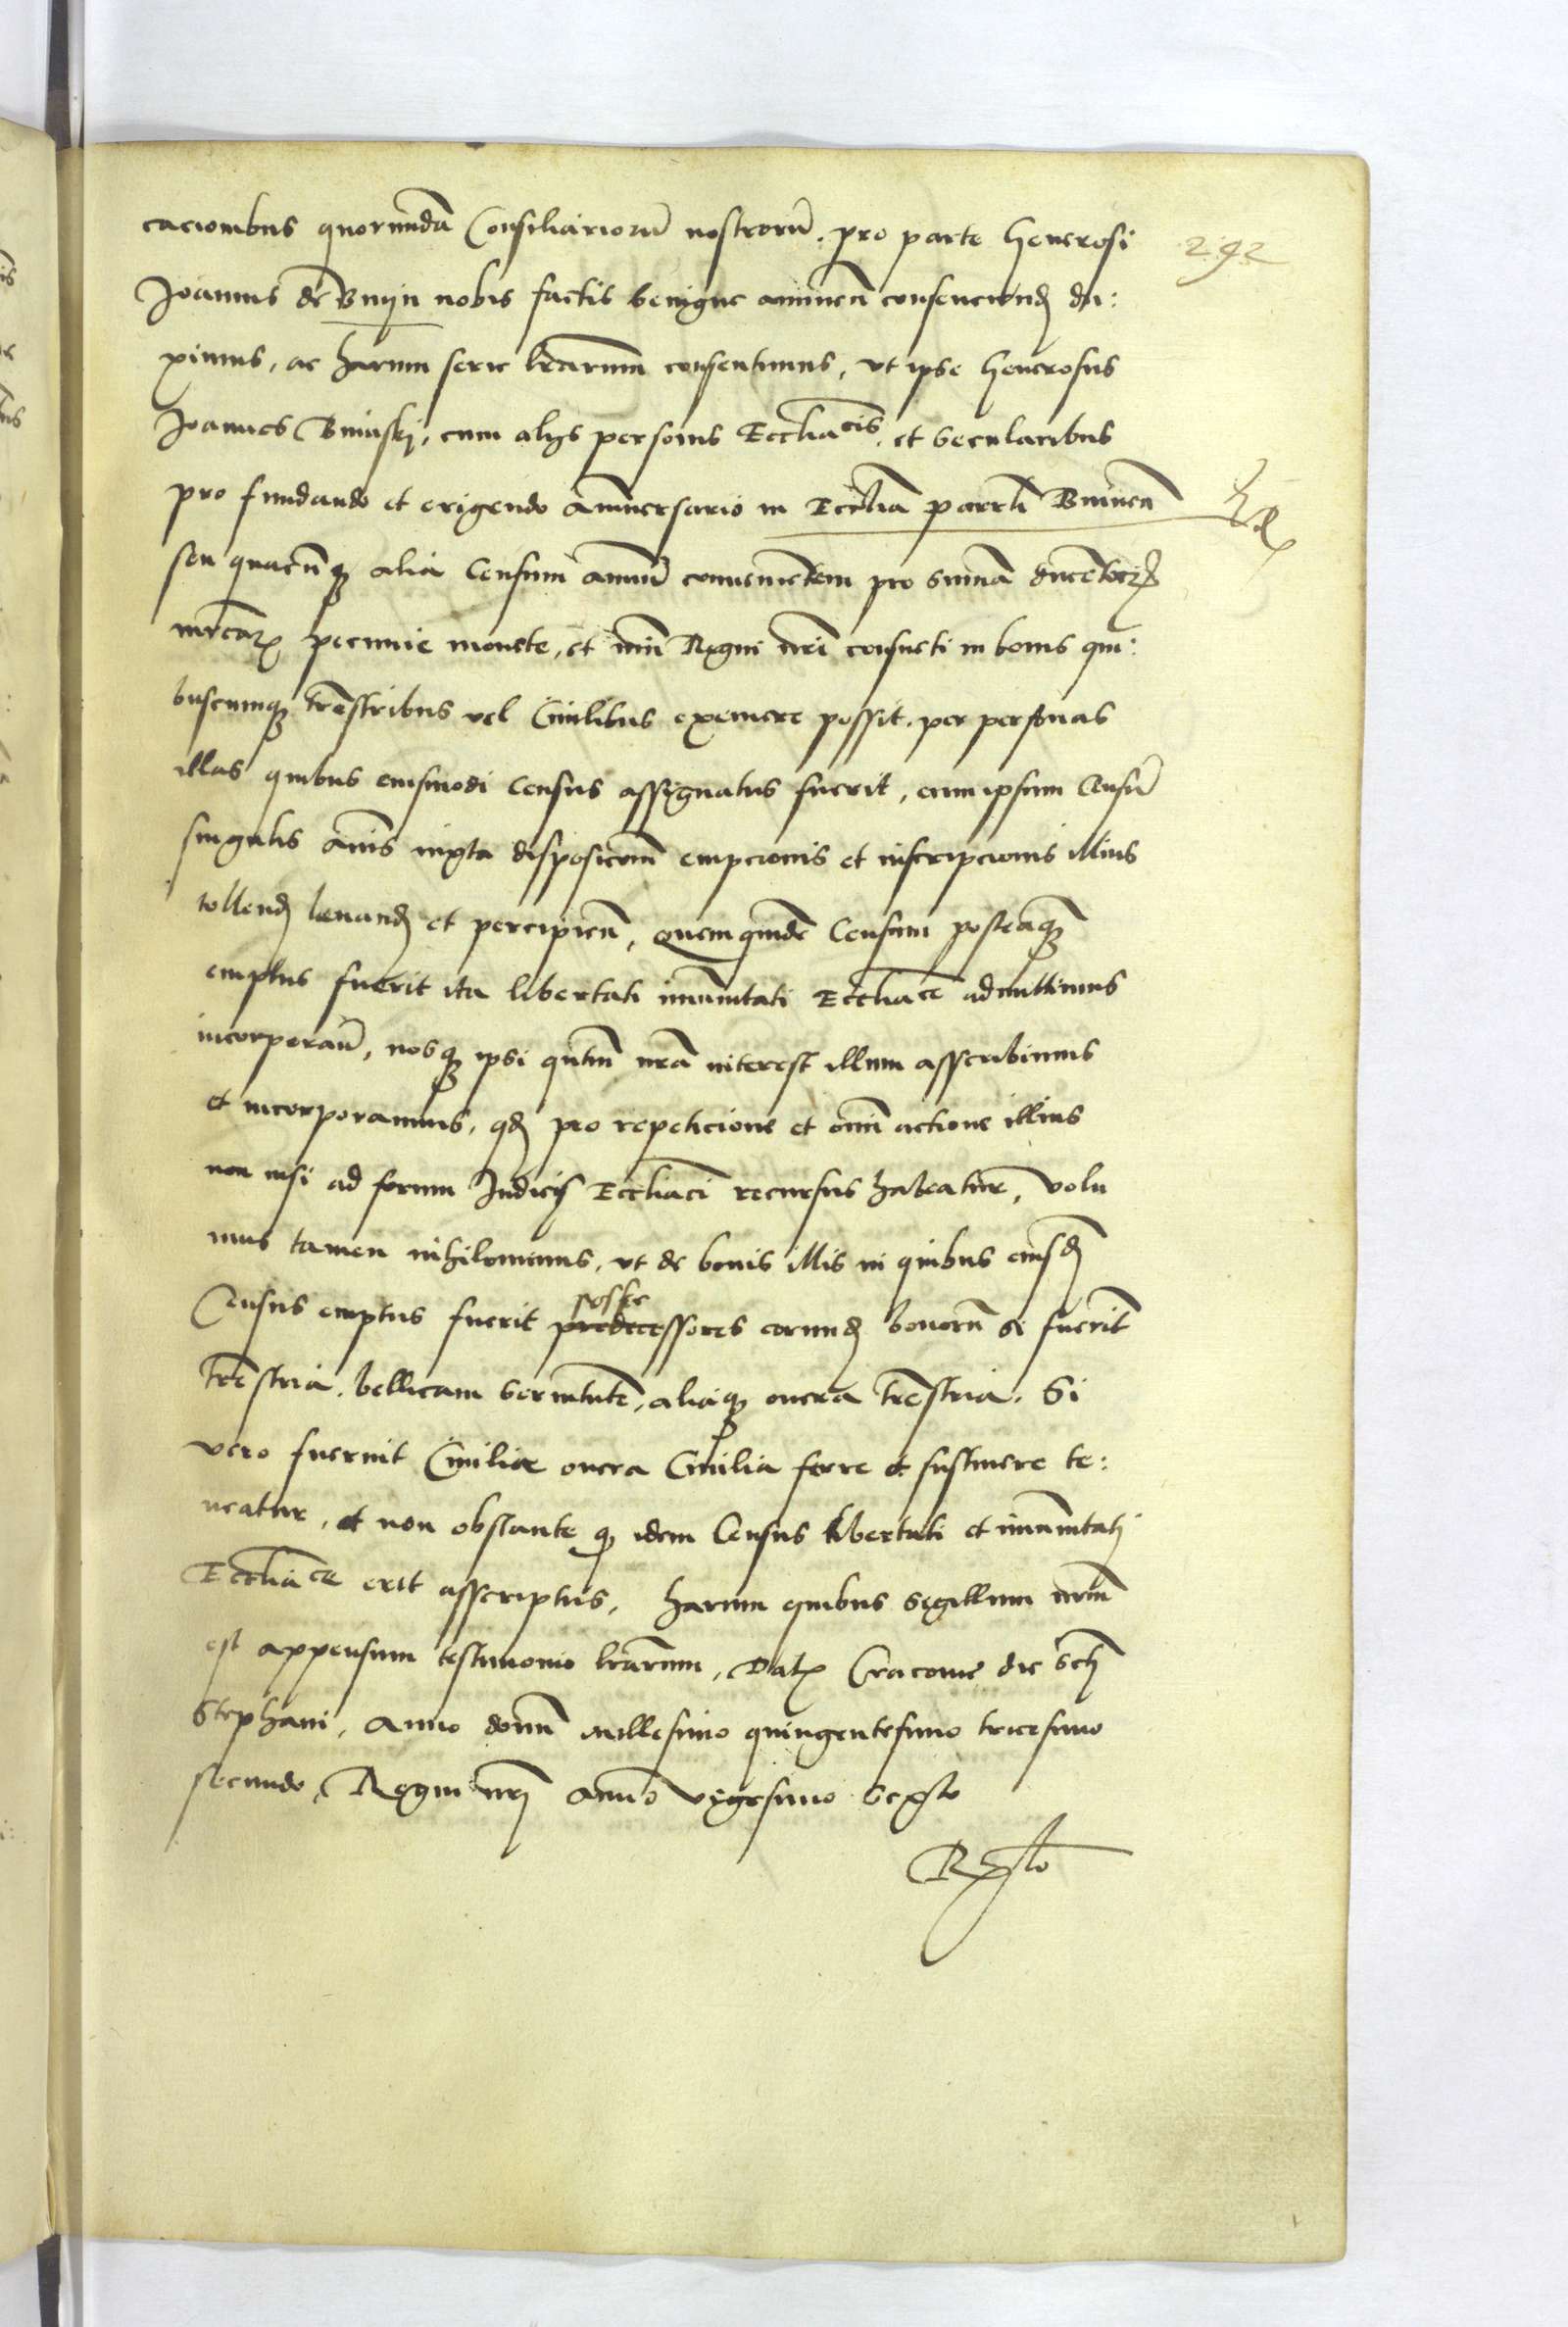 cacionibus quorundā Consiliariorū nostrorū pro parte Generosi
292
Joannis de Bnijn nobis factis benigne annuen̄ consenciend̄ du:
ximus, ac harum serie l̄rarum consentimus, vt ipse Generosus
Joannes Bninskj, cum alijs personis Eccl̄iacis, et secularibus
pro fundando et erigendo Anniversario in Eccl̄ia parrl̄i Bninen̄
seu quacūq̨ alia Censum annuū conuenientem pro sum̄a ducentoꝝ
mr̄caꝝ pecunie monete, et num̄i Regni nr̄i consueti in bonis qui:
buscumq̨ tr̄estribus vel Ciuilibus exemere possit, per personas
illas quibus eiusmodi Census assignatus fuerit, eum ipsum Censū
singulis an̄is iuxta disposicōm̄ empcionis et inscripcionis illius
tollend̄ leuand̄ et percipien̄, quem quidē Censum posteaq̨
emptus fuerit ita libertati im̄unitati Eccl̄iace admittimus
incorporan̄, nosq̨ ipsi quātum nr̄a interest illum asscribimus
et incorporamus, qd̄ pro repeticione et om̄i actione illius
non nisi ad forum Judicij Eccl̄iaci recursus habeatur, Volu
mus tamen nihilominus, vt de bonis illis in quibus eiusd̄
Census emptus fuerit predecessores posse eorund̄ bonorū si fuerīt
tr̄estria, bellicam seruitutē, aliaq̨ onera tr̄estria, Si
vero fuerint Ciuilia onera Ciuilia ferre et sustinere te:
neatur, et non obstante q̨ idem Census libertati et im̄unitati
Eccl̄iace erit asscriptus, harum quibus Sigillum nr̄m
est appensum testimonio l̄rarum, Datꝝ Cracovie die Scti
Stephani, Anno domī millesimo quingentesimo tricesimo
secundo, Regni nr̄i Anno vigesimo Sexto